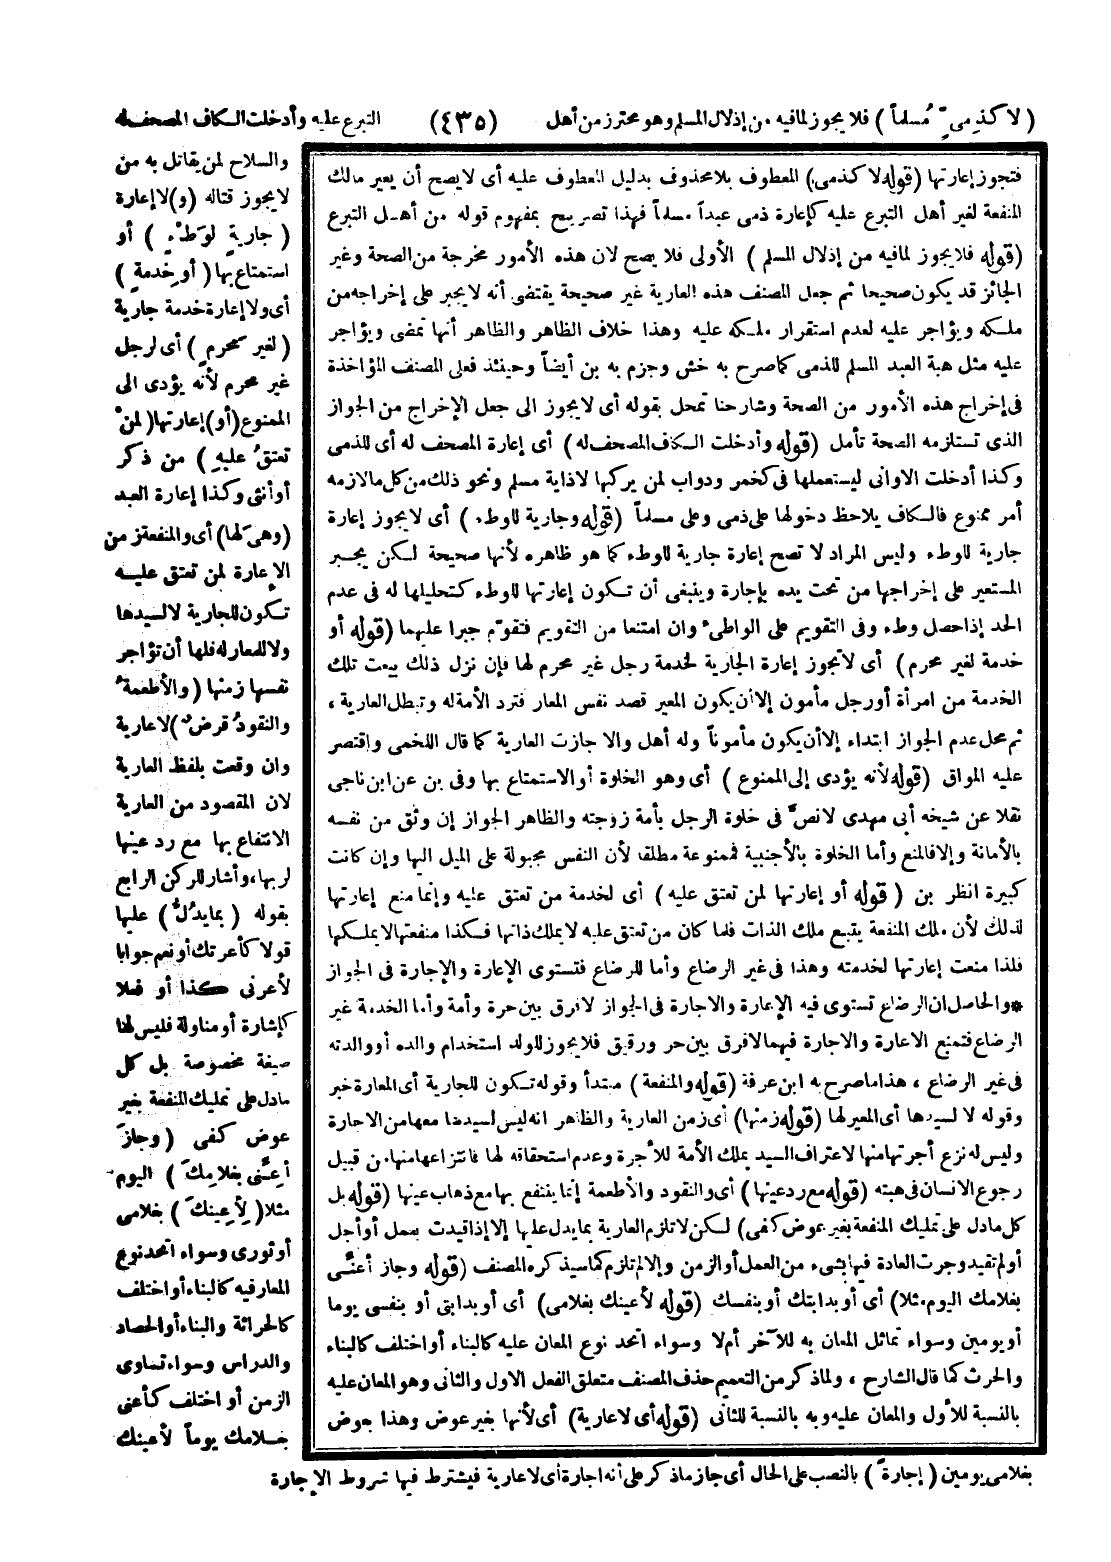 ( لا كذمىٍّ مُسلماً ) فلا يجوز لمافيه من إذلال المسلم وهو محترز من أهل (٤٣٥) التبرع عليه وأدخلت الكاف المصحف له
والسلاح لمن يقاتل به من
لايجوز قتاله (و) لا إعارة
( جاريةٍ لوَطْءٍ ) أو
استمتاع بها ( أو خِدمةٍ )
أى ولا إعارة خدمة جارية
( لغير محرمٍ ) أى لرجل
غير محرم لأنه يؤدى الى
الممنوع (أو) إعارتها (لمنْ
تعتقُ عليهِ ) من ذكر
أو أنثى وكذا إعارة العبد
(وهىَ لها) أى والمنفعة زمن
الإعارة لمن تعتق عليه
تكون للجارية لا لسيدها
ولا للمعار له فلها أن تؤاجر
نفسها زمنها ( والأطعمةُ
والنقودُ قرضٌ ) لا عارية
وان وقعت بلفظ العارية
لان المقصود من العارية
الانتفاع بها مع رد عينها
لربها، وأشار للركن الرابع
بقوله ( بمايدُلُّ ) عليها
قولا كأعرتك أو نعم جوابا
لأعرنى كذا أو فعلا
كإشارة أو مناولة فليس لها
صيغة مخصوصة بل كل
مادل على تمليك المنفعة بغير
عوض كفى ( وجازَ
أعِنِّى بغلامِكَ ) اليوم
مثلا ( لِأعينكَ ) بغلامى
أو ثورى وسواء اتحد نوع
المعار فيه كالبناء أو اختلف
كالحراثة والبناء أو الحصاد
والدراس وسواء تساوى
الزمن أو اختلف كأعنى
بغلامك يوماً لأعينك
بغلامى يومين ( إجارةً ) بالنصب على الحال أى جاز ماذكر على أنه اجارة أى لا عارية فيشترط فيها شروط الإجارة
فتجوز إعارتها (قوله لا كذمى) المعطوف بلا محذوف بدليل المعطوف عليه أى لا يصح أن يعير مالك
المنفعة لغير أهل التبرع عليه كإعارة ذمى عبداً مسلماً فهذا تصريح بمفهوم قوله من أهل التبرع
(قوله فلايجوز لمافيه من إذلال المسلم ) الأولى فلا يصح لان هذه الأمور مخرجة من الصحة وغير
الجائز قد يكون صحيحا ثم جعل المصنف هذه العارية غير صحيحة يقتضى أنه لايجبر على إخراجه من
ملكه ويؤاجر عليه لعدم استقرار ملكه عليه وهذا خلاف الظاهر والظاهر أنها تمضى ويؤاجر
عليه مثل هبة العبد المسلم للذمى كما صرح به خش وجزم به بن أيضاً وحينئذ فعلى المصنف المؤاخذة
فى إخراج هذه الأمور من الصحة وشارحنا تمحل بقوله أى لايجوز الى جعل الإخراج من الجواز
الذى تستلزمه الصحة تأمل (قوله وأدخلت الكاف المصحف له ) أى إعارة المصحف له أى للذمى
وكذا أدخلت الاوانى ليستعملها فى كخمر ودواب لمن يركبها لاذاية مسلم ونحو ذلك من كل مالازمه
أمر ممنوع فالكاف يلاحظ دخولها على ذمى وعلى مسلماً (قوله وجارية للوطء ) أى لايجوز إعارة
جارية للوطء وليس المراد لا تصح إعارة جارية للوطء كما هو ظاهره لأنها صحيحة لكن يجبر
المستعير على إخراجها من تحت يده بإجارة وينبغى أن تكون إعارتها للوطء كتحليلها له فى عدم
الحد إذا حصل وطء وفى التقويم على الواطىء وان امتنعا من التقويم فتقوّم جبرا عليهما (قوله أو
خدمة لغير محرم ) أى لا تجوز إعارة الجارية لخدمة رجل غير محرم لها فإن نزل ذلك بيعت تلك
الخدمة من امرأة أو رجل مأمون إلا أن يكون المعير قصد نفس المعار فترد الأمة له وتبطل العارية ،
ثم محل عدم الجواز ابتداء إلا أن يكون مأموناً وله أهل والا جازت العارية كما قال اللخمى واقتصر
عليه المواق (قوله لأنه يؤدى إلى الممنوع ) أى وهو الخلوة أو الاستمتاع بها وفى بن عن ابن ناجى
نقلا عن شيخه أبى مهدى لانصّ فى خلوة الرجل بأمة زوجته والظاهر الجواز إن وثق من نفسه
بالأمانة وإلا فالمنع وأما الخلوة بالأجنبية فممنوعة مطلقا لأن النفس مجبولة على الميل اليها وإن كانت
كبيرة انظر بن ( قوله أو إعارتها لمن تعتق عليه ) أى لخدمة من تعتق عليه وإنما منع إعارتها
لذلك لأن ملك المنفعة يتبع ملك الذات فلما كان من تعتق عليه لايملك ذاتها فكذا منفعتها لايملكها
فلذا منعت إعارتها لخدمته وهذا فى غير الرضاع وأما للرضاع فتستوى الإعارة والإجارة فى الجواز
*والحاصل ان الرضاع تستوى فيه الإعارة والاجارة فى الجواز لا فرق بين حرة وأمة وأما الخدمة غير
الرضاع فتمنع الاعارة والاجارة فيهما لا فرق بين حر ورقيق فلا يجوز للولد استخدام والده أو والدته
فى غير الرضاع ، هذا ما صرح به ابن عرفة (قوله والمنفعة ) مبتدأ وقوله تكون للجارية أى المعارة خبر
وقوله لا لسيدها أى المعير لها (قوله زمنها) أى زمن العارية والظاهر انه ليس لسيدها معها من الاجارة
وليس له نزع أجرتها منها لاعتراف السيد بملك الأمة للأجرة وعدم استحقاقه لها فانتزاعها منها من قبيل
رجوع الانسان فى هبته (قوله مع رد عينها) أى والنقود والأطعمة إنما ينتفع بها مع ذهاب عينها (قوله بل
كل مادل على تمليك المنفعة بغير عوض كفى) لكن لا تلزم العارية بما يدل عليها إلا إذا قيدت بعمل أو أجل
أو لم تقيد وجرت العادة فيها بشىء من العمل أو الزمن وإلا لم تلزم كما سيذكره المصنف (قوله وجاز أعنّى
بغلامك اليوم مثلا) أى أو بدابتك أو بنفسك (قوله لأعينك بغلامى) أى أو بدابتى أو بنفسى يوما
أو يومين وسواء تماثل المعان به للآخر أم لا وسواء اتحد نوع المعان عليه كالبناء أو اختلف كالبناء
والحرث كما قال الشارح ، ولما ذكر من التعميم حذف المصنف متعلق الفعل الاول والثانى وهو المعان عليه
بالنسبة للأول والمعان عليه وبه بالنسبة للثانى (قوله أى لا عارية) أى لأنها بغير عوض وهذا بعوض